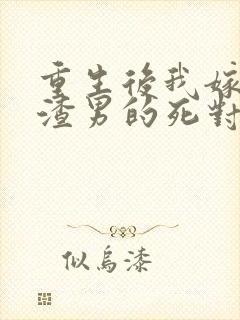 重生後我嫁
渣男的死對
似烏漆